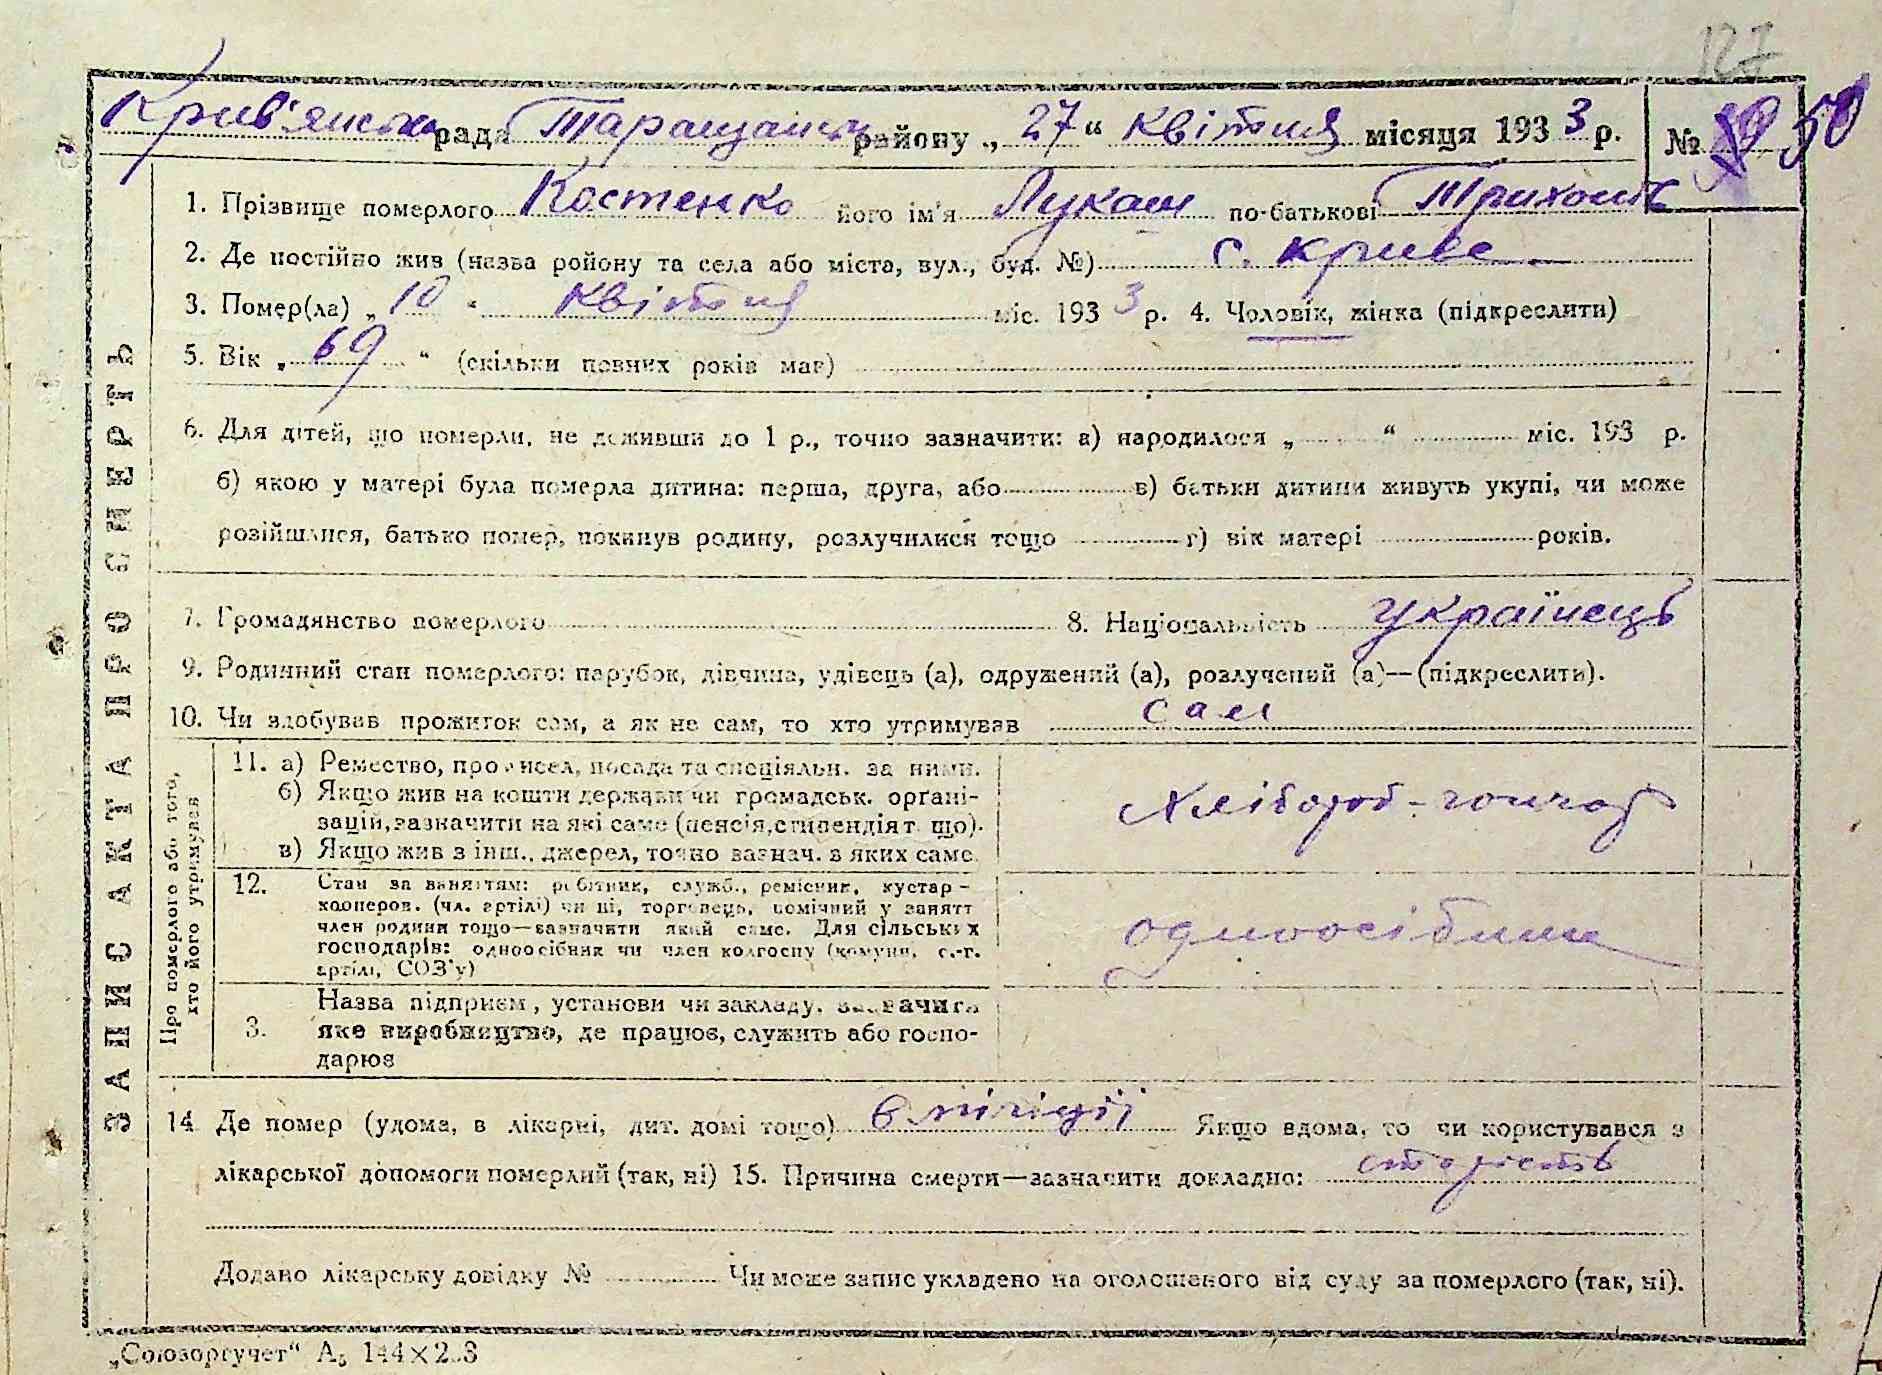 127
Крив'янська рада Таращанськ району „27“ квітня місяця 1933 р. № 50
1. Прізвище померлого Костенко його ім'я Лукаш по-батькові
2. Де постійно жив (назва ройону та села або міста, вул., буд. №) с. Криве
3. Помер(ла) „10“ квітня міс. 1933 р. 4. Чоловік, жінка (підкреслити)
5. Вік „69“ (скільки повних років мав)
6. Для дітей, що померли, не доживши до 1 р., точно зазначити: а) народилося „ “ міс. 193 р.
б) якою у матері була померла дитина: перша, друга, або в) батьки дитини живуть укупі, чи може
розійшлися, батько помер, покинув родину, розлучилися тощо г) вік матері років.
7. Громадянство померлого 8. Національність українець
9. Родинний стан померлого: парубок, дівчина, удівець (а), одружений (а), розлучений (а)—(підкреслити).
10. Чи здобував прожиток сам, а як не сам, то хто утримував сам
ЗАПИС АКТА ПРО СМЕРТЬ
Про померлого або того,
хто його утримував
11. а) Ремество, промисел, посада та спеціяльн. за ними.
б) Якщо жив на кошти держави чи громадськ. органі-
зацій, зазначити на які саме (пенсія, стипендія т що).
в) Якщо жив з інш., джерел, точно вазнач. з яких саме.
Хлібороб - гончар
12. Стан за заняттям: робітник, служб., ремісник, кустар -
кооперов. (чл. артілі) чи ні, торговець, помічний у занятт
член родини тощо—зазначити який саме. Для сільських
господарів: одноосібник чи член колгоспу (комуни, с.-г.
артілі, СОЗ'у)
одноосібник
3. Назва підприєм, установи чи закладу, зазначити
яке виробництво, де працює, служить або госпо-
дарює
14 Де помер (удома, в лікарні, дит. домі тощо) в міліції Якщо вдома, то чи користувався з
лікарської допомоги померлий (так, ні) 15. Причина смерти—зазначити докладно: старість
Додано лікарську довідку № Чи може запис укладено на оголошеного від суду за померлого (так, ні).
„Союзоргучет“ А5 144×2 3